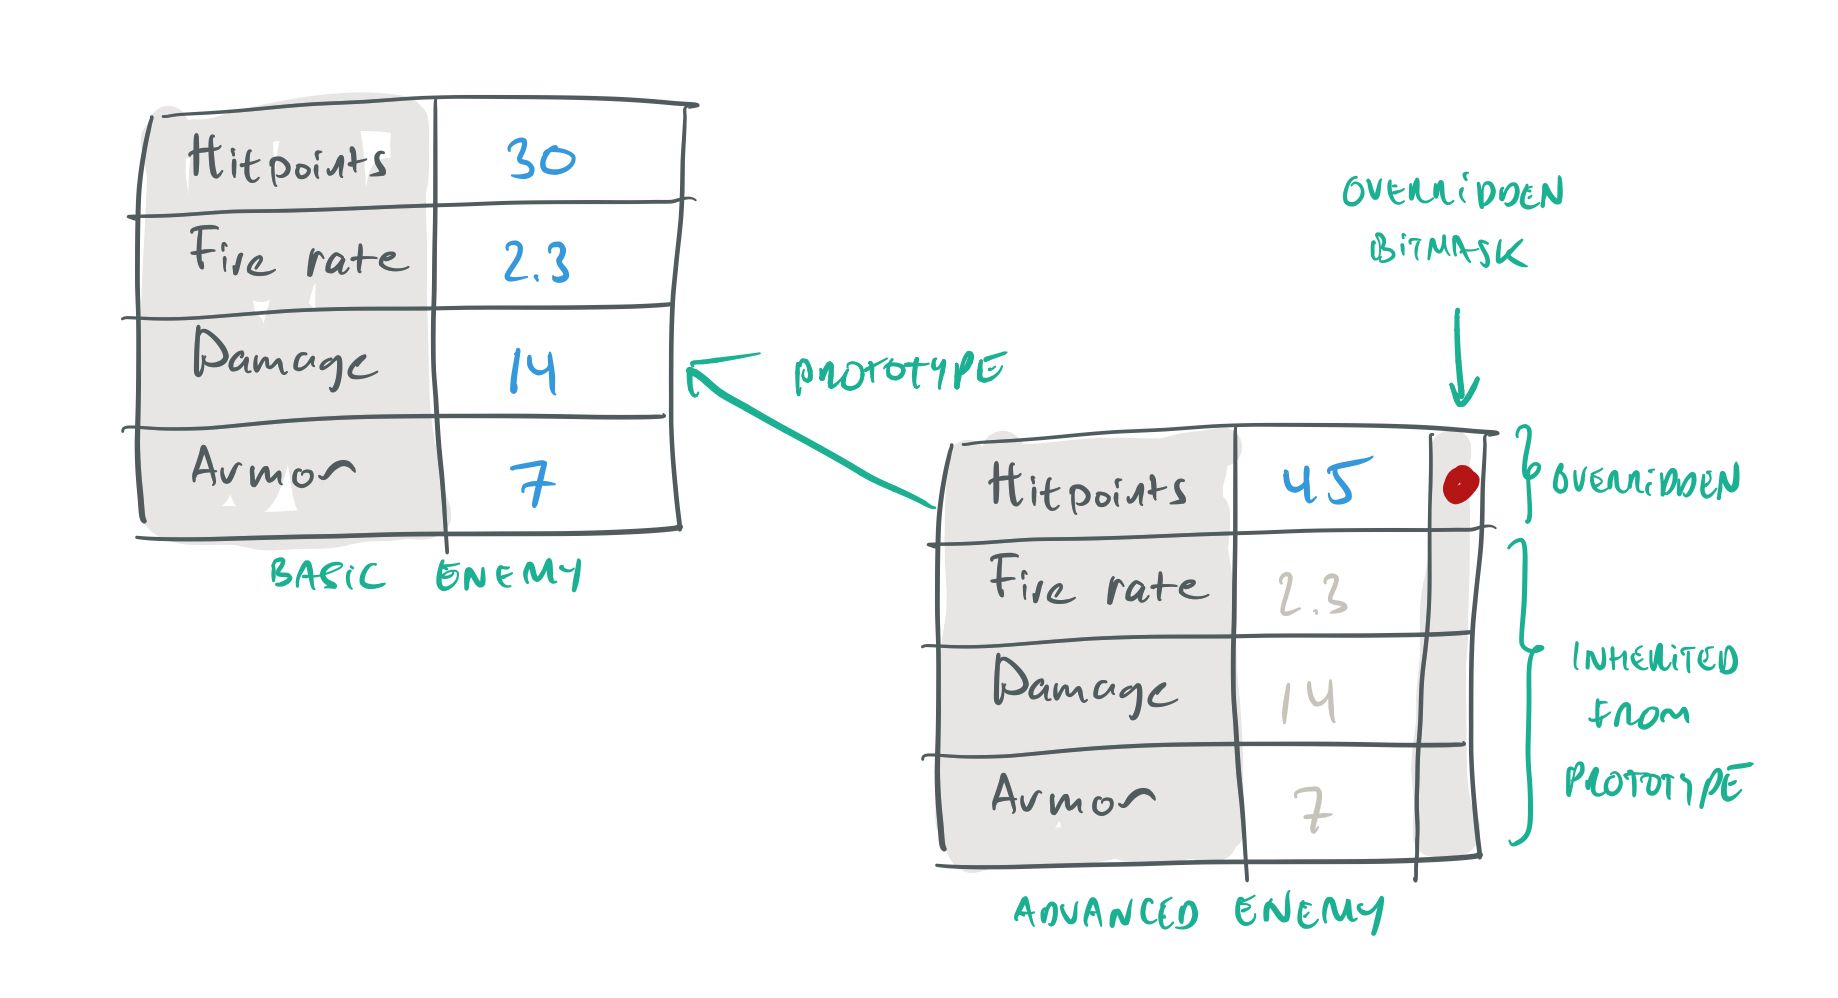 Hitpoints 30
Fire rate 2.3
Damage 14
Armor 7
BASIC ENEMY
PROTOTYPE
OVERRIDDEN
BITMASK
Hitpoints 45
Fire rate 2.3
Damage 14
Armor 7
ADVANCED ENEMY
OVERRIDDEN
INHERITED
FROM
PROTOTYPE